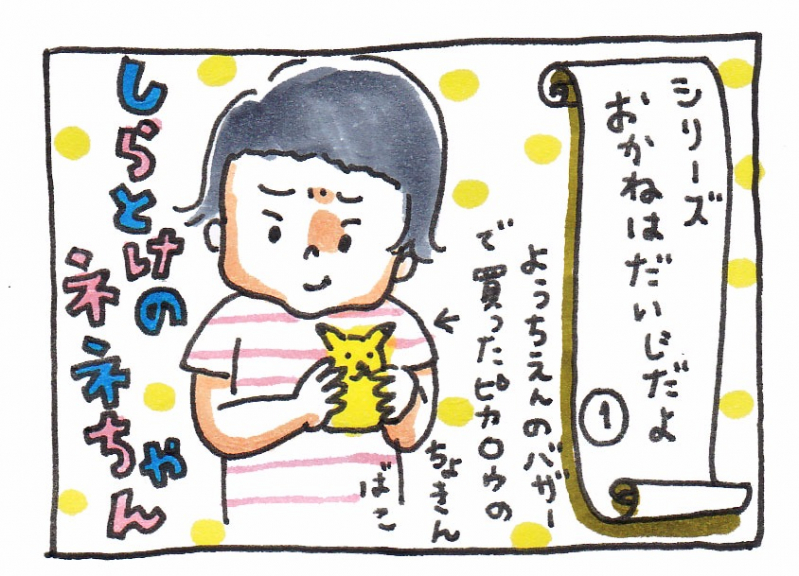 シリーズ
おかねはだいじだよ
1
ようちえんのバザー
で買ったピカロウの
ちょきん
ばこ
しらとけの
ネネちゃん